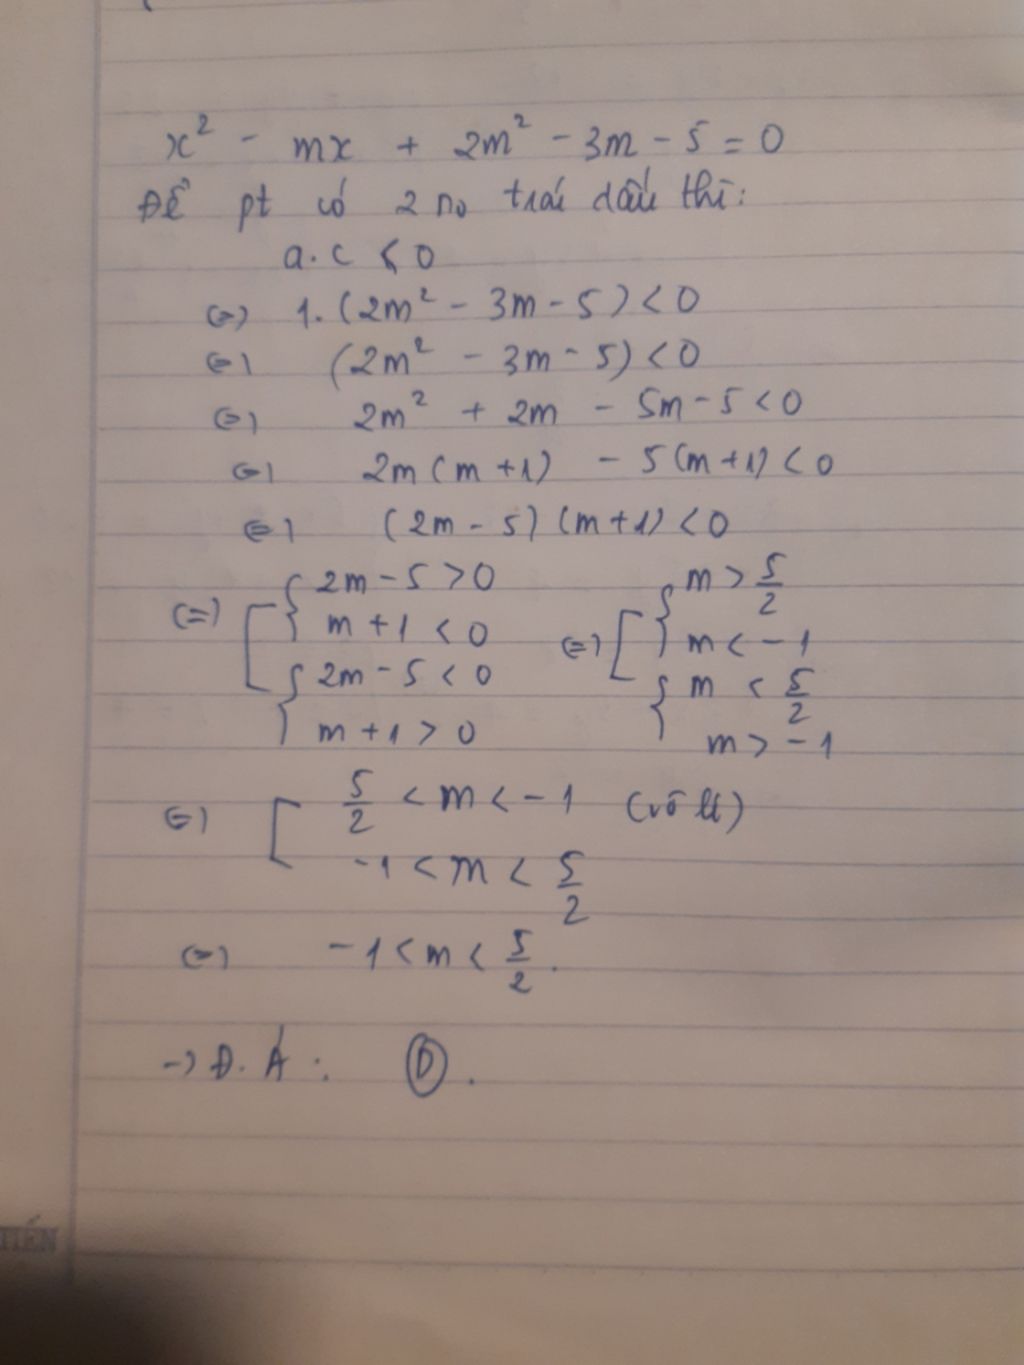 x² - mx + 2m² - 3m - 5 = 0
Để pt có 2 no trái dấu thì:
a.c < 0
(=) 1.(2m² - 3m - 5) < 0
(=) (2m² - 3m - 5) < 0
(=) 2m² + 2m - 5m - 5 < 0
(=) 2m(m+1) - 5(m+1) < 0
(=) (2m - 5)(m+1) < 0
(=) [ { 2m - 5 > 0 (=) [ { m > 5/2
m + 1 < 0 m < -1
{ 2m - 5 < 0 { m < 5/2
m + 1 > 0 m > -1
(=) [ 5/2 < m < -1 (vô lí)
-1 < m < 5/2
(=) -1 < m < 5/2.
-) Đ.Á: D.
TIẾN